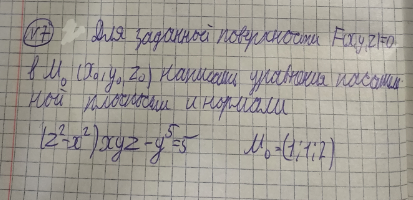 №7 Для заданной поверхности F(x,y,z)=0
в M₀ (x₀,y₀,z₀) написать уравнения касатель
ной плоскости и нормали
(z²-x²)xyz-y⁵=5 M₀=(1;1;2)